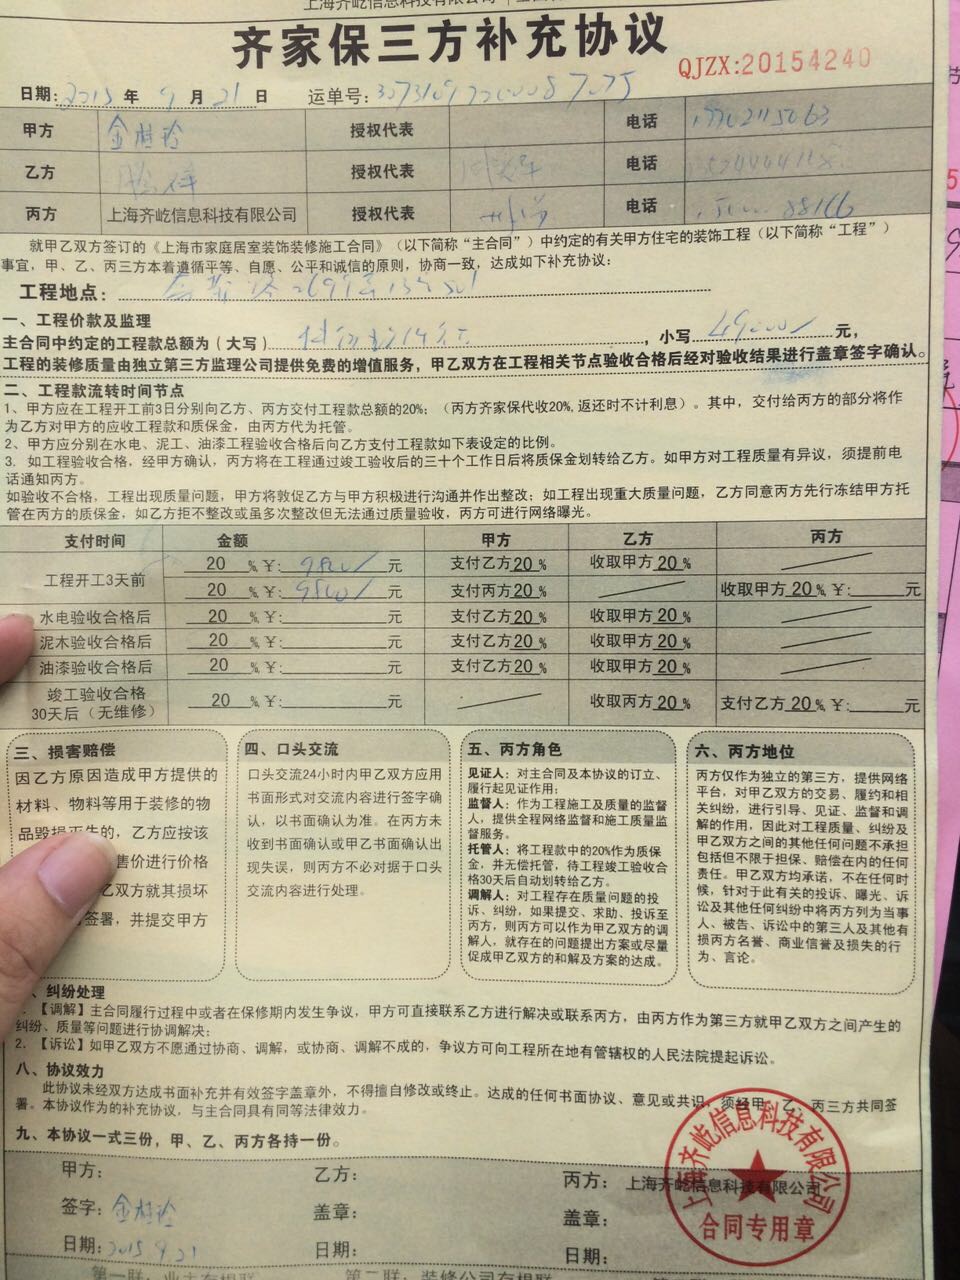 上海齐屹信息科技有限公司
齐家保三方补充协议
QJZX:20154240
日期: 2015 年 9 月 21 日 运单号:
甲方 授权代表 电话
乙方 授权代表 电话
丙方 上海齐屹信息科技有限公司 授权代表 电话
就甲乙双方签订的《上海市家庭居室装饰装修施工合同》(以下简称“主合同”)中约定的有关甲方住宅的装饰工程(以下简称“工程”)
事宜,甲、乙、丙三方本着遵循平等、自愿、公平和诚信的原则,协商一致,达成如下补充协议:
工程地点:
一、工程价款及监理
主合同中约定的工程款总额为(大写) ,小写 49000/ 元,
工程的装修质量由独立第三方监理公司提供免费的增值服务,甲乙双方在工程相关节点验收合格后经对验收结果进行盖章签字确认。
二、工程款流转时间节点
1、甲方应在工程开工前3日分别向乙方、丙方交付工程款总额的20%;(丙方齐家保代收20%,返还时不计利息)。其中,交付给丙方的部分将作
为乙方对甲方的应收工程款和质保金,由丙方代为托管。
2、甲方应分别在水电、泥工、油漆工程验收合格后向乙方支付工程款如下表设定的比例。
3. 如工程验收合格,经甲方确认,丙方将在工程通过竣工验收后的三十个工作日后将质保金划转给乙方。如甲方对工程质量有异议,须提前电
话通知丙方。
如验收不合格,工程出现质量问题,甲方将敦促乙方与甲方积极进行沟通并作出整改;如工程出现重大质量问题,乙方同意丙方先行冻结甲方托
管在丙方的质保金,如乙方拒不整改或虽多次整改但无法通过质量验收,丙方可进行网络曝光。
支付时间 金额 甲方 乙方 丙方
工程开工3天前 20 %￥: 9800/ 元 支付乙方20% 收取甲方20%
20 %￥: 9800/ 元 支付丙方20% 收取甲方20%￥: 元
水电验收合格后 20 %￥: 元 支付乙方20% 收取甲方20%
泥木验收合格后 20 %￥: 元 支付乙方20% 收取甲方20%
油漆验收合格后 20 %￥: 元 支付乙方20% 收取甲方20%
竣工验收合格
30天后(无维修) 20 %￥: 元 收取丙方20% 支付乙方20%￥: 元
三、损害赔偿
因乙方原因造成甲方提供的
材料、物料等用于装修的物
品毁损灭失的,乙方应按该
售价进行价格
乙双方就其损坏
签署,并提交甲方
四、口头交流
口头交流24小时内甲乙双方应用
书面形式对交流内容进行签字确
认,以书面确认为准。在丙方未
收到书面确认或甲乙书面确认出
现失误,则丙方不必对据于口头
交流内容进行处理。
五、丙方角色
见证人:对主合同及本协议的订立、
履行起见证作用;
监督人:作为工程施工及质量的监督
人,提供全程网络监督和施工质量监
督服务。
托管人:将工程款中的20%作为质保
金,并无偿托管,待工程竣工验收合
格30天后自动划转给乙方。
调解人:对工程存在质量问题的投
诉、纠纷,如果提交、求助、投诉至
丙方,则丙方可以作为甲乙方的调
解人,就存在的问题提出方案或尽量
促成甲乙双方的和解及方案的达成。
六、丙方地位
丙方仅作为独立的第三方,提供网络
平台,对甲乙双方的交易、履约和相
关纠纷,进行引导、见证、监督和调
解的作用,因此对工程质量、纠纷及
甲乙双方之间的其他任何问题不承担
包括但不限于担保、赔偿在内的任何
责任。甲乙双方均承诺,不在任何时
候,针对于此有关的投诉、曝光、诉
讼及其他任何纠纷中将丙方列为当事
人、被告、诉讼中的第三人及其他有
损丙方名誉、商业信誉及损失的行
为、言论。
、纠纷处理
.【调解】主合同履行过程中或者在保修期内发生争议,甲方可直接联系乙方进行解决或联系丙方,由丙方作为第三方就甲乙双方之间产生的
纠纷、质量等问题进行协调解决;
2.【诉讼】如甲乙双方不愿通过协商、调解,或协商、调解不成的,争议方可向工程所在地有管辖权的人民法院提起诉讼。
八、协议效力
此协议未经双方达成书面补充并有效签字盖章外,不得擅自修改或终止。达成的任何书面协议、意见或共识,须经甲、乙、丙三方共同签
署。本协议作为的补充协议,与主合同具有同等法律效力。
九、本协议一式三份,甲、乙、丙方各持一份。
甲方: 乙方: 丙方: 上海齐屹信息科技有限公司
签字: 盖章: 盖章:
日期: 2015 9.21 日期: 日期:
上海齐屹信息科技有限公司
合同专用章
第一联:业主存根联 第二联:装修公司存根联